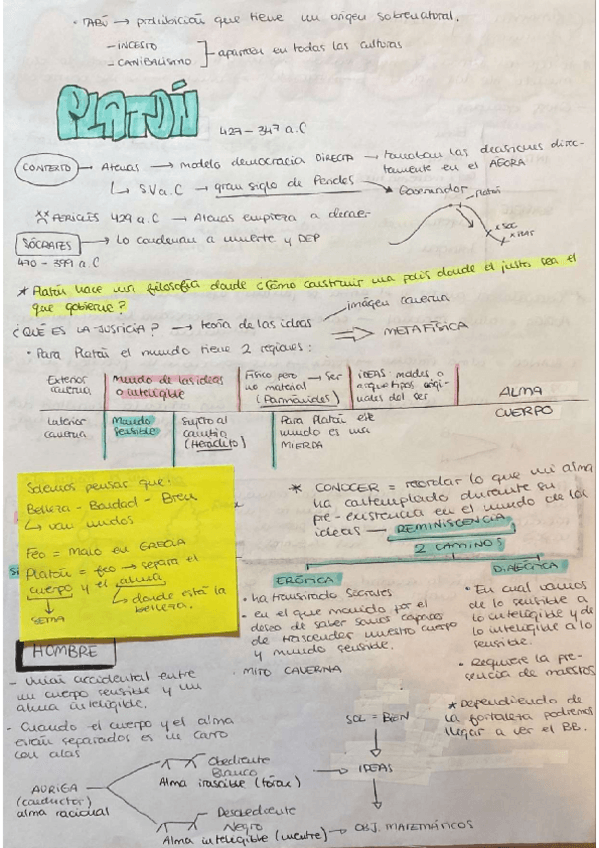 · TABÚ → prohibición que tiene un origen sobrenatural.
– INCESTO
– CANIBALISMO
aparecen en todas las culturas
PLATÓN
427 – 347 a.C
CONTEXTO → Atenas → modelo democracia DIRECTA → tomaban las decisiones direc-
tamente en el AGORA
↳ SV a.C → gran siglo de Pericles → Gobernador
Platón
x SOC
x PLAT
** PERICLES 429 a.C → Atenas empieza a decaer
SÓCRATES → lo condenan a muerte y DEP
470 – 399 a.C
* Platón hace una filosofía donde ¿Cómo construir una polis donde el justo sea el
que gobierne?
¿QUÉ ES LA JUSTICIA? → teoría de las ideas
imágen caverna
METAFÍSICA
· Para Platón el mundo tiene 2 regiones:
Exterior caverna
Mundo de las ideas o inteligible
Físico pero no material → Ser (Parménides)
IDEAS: modelos o arquetipos origi-
nales del ser
ALMA
CUERPO
Interior caverna
Mundo sensible
Sujeto al cambio (Heráclito)
Para Platón este mundo es una MIERDA
Solemos pensar que:
Belleza - Bondad - Bien
↳ van unidos
Feo = Malo en GRECIA
Platón = feo → separa el
cuerpo y el alma
↳ donde está la
belleza.
SEMA
* CONOCER = recordar lo que mi alma
ha contemplado durante su
pre-existencia en el mundo de las
ideas — REMINISCENCIA
2 CAMINOS
ERÓTICA
· ha transitado Sócrates
· en el que movido por el
deseo de saber somos capaces
de trascender nuestro cuerpo
y mundo sensible.
MITO CAVERNA
DIALÉCTICA
· En cual vamos
de lo sensible a
lo inteligible y de
lo inteligible a lo
sensible.
· Requiere la pre-
sencia de maestros
* Dependiendo de
la fortaleza podremos
llegar a ver el BB.
HOMBRE
– Unión accidental entre
un cuerpo sensible y un
alma inteligible.
– Cuando el cuerpo y el alma
están separados es un carro
con alas
AURIGA
(conductor)
alma racional
Obediente
Blanco
Alma irascible (tórax)
Desobediente
Negro
Alma inteligible (vientre)
SOL = BIEN
IDEAS
OBJ. MATEMÁTICOS